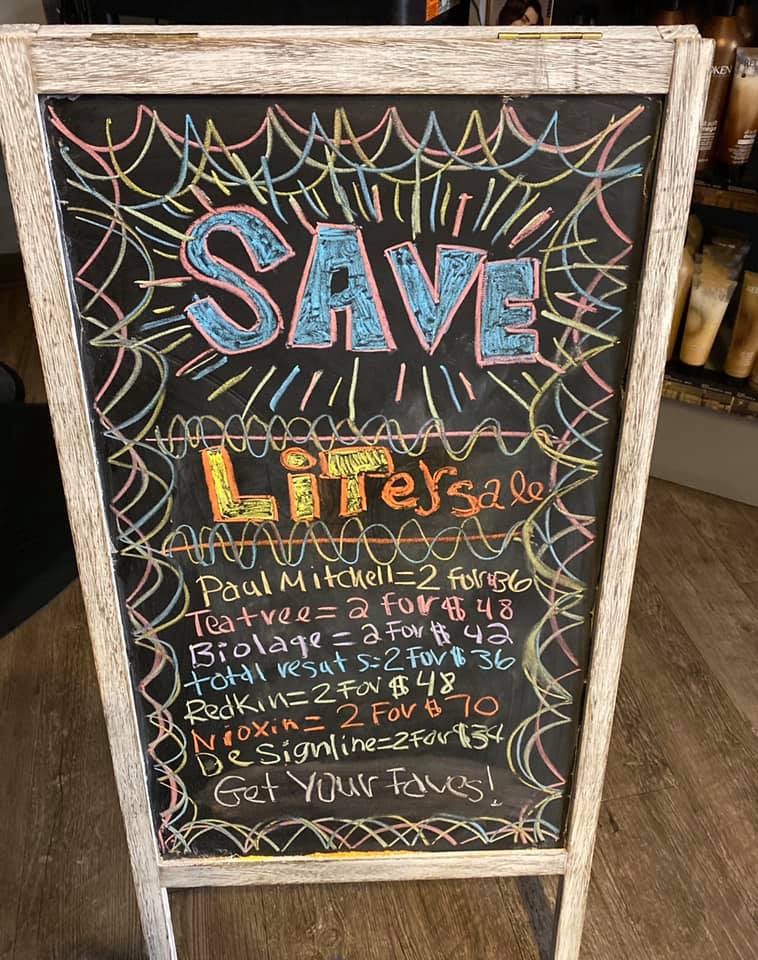 SAVE
LiTer sale
Paul Mitchell=2 for $36
Teatree=2 for $48
Biolage=2 For $ 42
total resuts=2 For $ 36
Redkin=2 For $48
Nioxin=2 For $70
Designline=2 For $34
Get Your Faves!